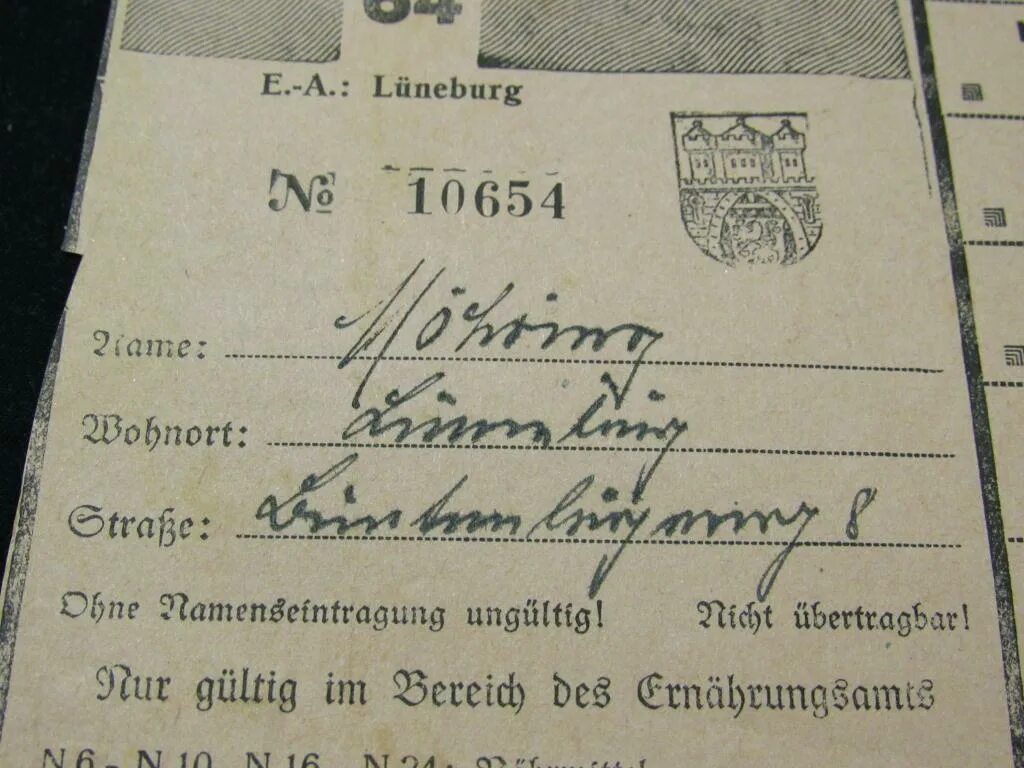 64
E.-A.: Lüneburg
№ 10654
Name: Möhring
Wohnort: Lüneburg
Straße: Buntenburgerweg 8
Ohne Namenseintragung ungültig! Nicht übertragbar!
Nur gültig im Bereich des Ernährungsamts
N 6 - N 10, N 16 - N 24: Nährmittel